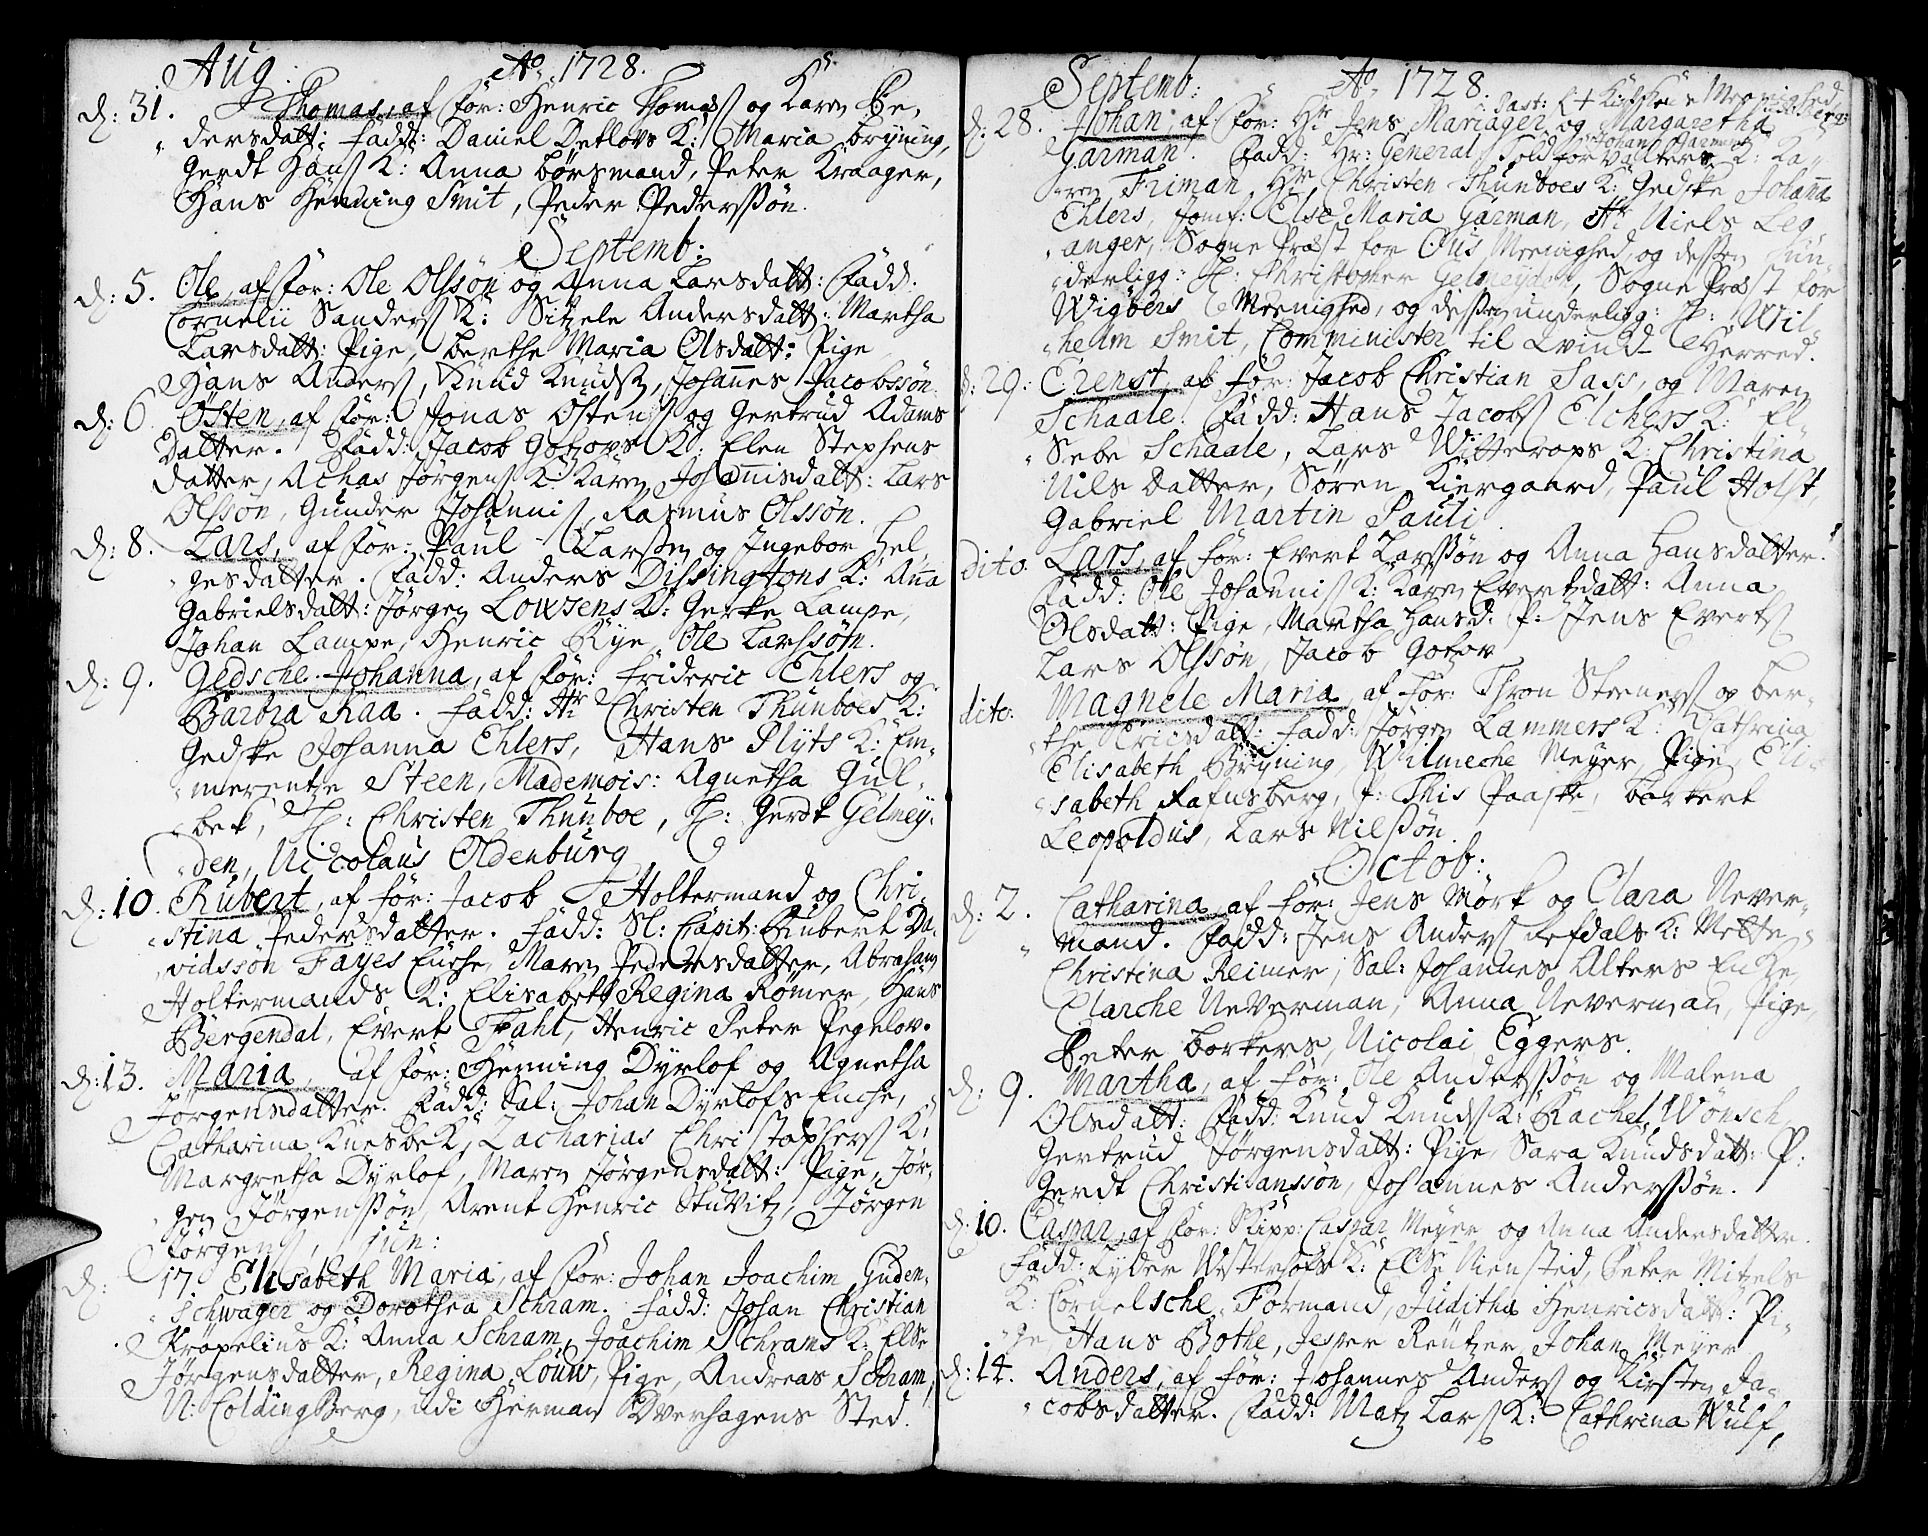 Aug: Ao. 1728.
d: 31. Thomas, af för: Henric Thomas ß og Karen Pe,
dersdatt: fadd: Daniel Detlovs K: Maria Bryning,
Gerdt Hanß K: Anna Börsmand, Peter Kraager,
Hans Henning Smit, Peder Pederssön.
Septemb:
d: 5. Ole, af för: Ole Olssön og Anna Larsdatt: Fadd:
Cornelii Sanders K: Sitzele Andersdatt: Martha
Larsdatt: Pige, Berthe Maria Olsdatt: Pige
Hans Anders, Knud Knuds, Johannes Jacobssön.
d: 6. Östen, af för: Jonas Östens og Gertrud Adams
Datter. Fadd: Jacob Gotzovs K: Elen Stephens
datter, Achas Jörgens K: Karen Johannisdatt: Lars
Olsson, Gunder Johannis, Rasmus Olssön.
d: 8. Lars, af för: Paul Larssen og Ingebor Hel,
gesdatter. Fadd: Anders Dissingtons K: Anna
Gabrielsdatt: Jörgen Lowsens K: Gerke Lampe,
Johan Lampe, Henric Rye, Ole Larssön.
d: 9. Gedsche Johanna, af för: Frideric Ehlers og
Barbra Raa. Fadd: Hr Christen Thunboes K:
Gedske Johanna Ehlers, Hans Plÿts K: Em,
merentze Steen, Mademois: Agnetha Gul,
bek, H: Christen Thunboe, H: Gerdt Gelmey,
den, Nicolaus Oldenburg
d: 10. Rubert, af för: Jacob Holtermand og Chri,
stina Pedersdatter. Fadd: Sl: Capit: Rubert Da,
vidssön Fayes Enche, Maren Pedersdatter, Abraham
Holtermands K: Elisabeth Regina Römer, Hans
Bergendal, Evert Fahl, Henric Peter Pegelov.
d: 13. Maria, af för: Henning Dyrlof og Agnetha
Jörgensdatter. Fadd: Sal: Johan Dyrlofs Enche,
Catharina KuesbeK, Zacharias Christophers K:
Margretha Dyrlof, Maren Jörgensdatt: Pige, Jör,
gen Jörgenssön, Arent Henric Stuvitz, Jörgen
Jörgens, jun:
d: 17. Elisabeth Maria, af för: Johan Joachim Guden,
Schwager og Dorothea Schram. Fadd: Johan Christian
Kröpelius K: Anna Schram, Joachim Schrams K: Else
Jörgensdatter, Regina Louw, Pige, Andreas Schram,
N: Colding Berg, udi Herman Dverhagens Sted.
Septemb: Ao. 1728.
Past: t + Kirkens Meenighed
d: 28. Johan, af för: Hr Jens Mariager og Margaretha
Garman. Fadd: Hr: General Told forvalter Johan Garmans K: Ka,
ren Friman, Hr Christen Thunboes K: Gedske Johanna
Ehlers, Jomf: Else Maria Garman, Hr Niels Leg,
anger, Sogne Præst for Ous Meenighed, og dessen un,
derligg: H: Christopher Gelmeyden, Sogne Præst for
Wigöers Meenighed, og dessen underligg: H: Wil,
helm Smit, Comminister til Qvind Herred.
d: 29. Erenst, af för: Jacob Christian Sass, og Maren
Schaale. Fadd: Hans Jacobs Elchers K: El,
sebe Schaale, Lars Witterops K: Christina
Nils Datter, Sören Kiergaard, Paul Holst,
Gabriel Martin Pauli.
dito. Lars, af för: Evert Larssön og Anna Hansdatter.
Fadd: Ole Johannis K: Karen Evertzdatt: Anna
Olsdatt: Pige, Martha Hansd: P: Jens Everts
Lars Olssön, Jacob Gotzov
dito. Magnele Maria, af för: Thron Steeners og Ber,
the Ericsdatt: Fadd: Jörgen Lammers K: Cathrina
Elisabeth Bryning, Wilmeche Meyer, Pige, Eli,
sabeth Rafnsberg, P: This Paaske, Borkert
Leopoldus, Lars Nilssön.
Octob:
d: 2. Catharina, af för: Jens Mörk og Clara Never,
mand. Fadd: Jens Anders Refdals K: Mette
Christina Reimer, Sal: Johannes Alters Enke,
Clarche Neverman, Anna Neverman, Pige
Peter Borkers, Nicolai Eggers.
d: 9. Martha, af för: Ole Anderssön og Malena
Olsdatt: Fadd: Knud Knuds K: Rachel Wönsch,
Gertrud Jörgensdatt: Pige, Sara Knudsdatt: P:
Gerdt Christianssön, Johannes Anderssön.
d: 10. Caspar, af för: Skipp: Caspar Meyer og Anna Andersdatter.
Fadd: Lyder Westerhofs K: Else Niensted, Peter Mitzels
K: Cornelsche Formand, Juditha Henricsdatt: Pi,
ge, Hans Bothe, Jesper Reutzer, Johan Meyer
d: 14. Anders, af för: Johannes Anders og Kirsten Ja,
cobsdatter. Fadd: Matz Lars K: Cathrina Wulf,